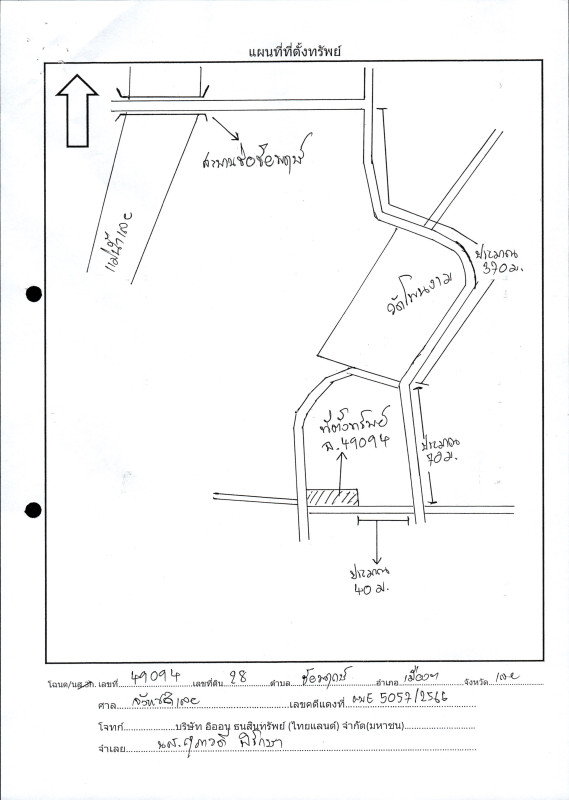 แผนที่ที่ตั้งทรัพย์
สะพานช่อชัยพฤกษ์
แม่น้ำเลย
ประมาณ
370 ม.
วัดโพนงาม
ที่ตั้งทรัพย์
ฉ.49094
ประมาณ
70 ม.
ประมาณ
40 ม.
โฉนด/นส.3ก. เลขที่ 49094 เลขที่ดิน 28 ตำบล ชัยพฤกษ์ อำเภอ เมืองฯ จังหวัด เลย
ศาล จังหวัดเลย เลขคดีแดงที่ ผบE 5057/2566
โจทก์ บริษัท อิออน ธนสินทรัพย์ (ไทยแลนด์) จำกัด(มหาชน)
จำเลย นส.สุภาวดี